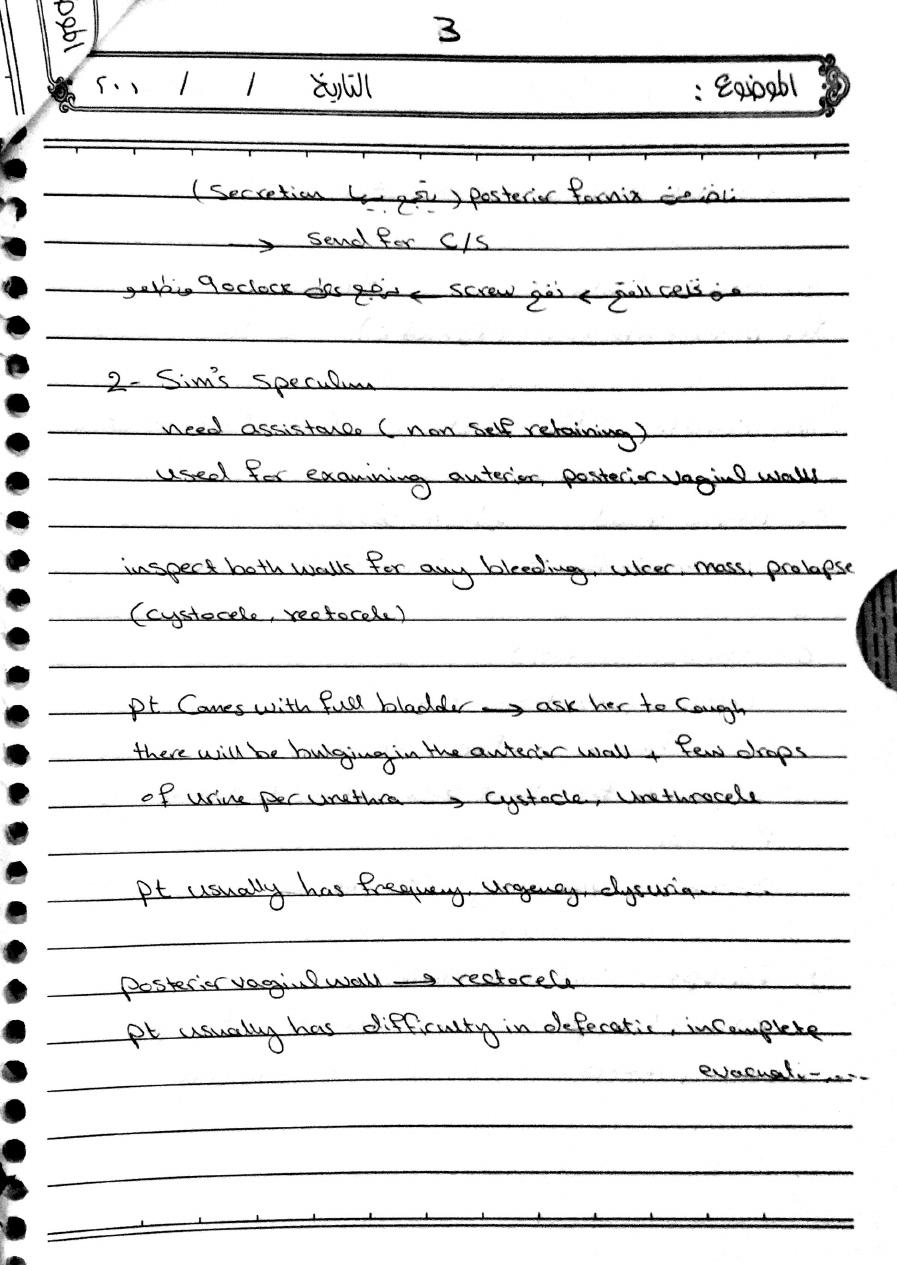 3
الموضوع
الموضوع : التاريخ / / ٢٠٠١
ناخذ من posterior fornix ( يتجمع بيها Secretion )
→ Send for C/S
من نفتح ← screw ← نرجع 9 oclock
2- Sim's speculum
need assistance ( non self retaining )
used for examining anterior, posterior vaginal walls
inspect both walls for any bleeding, ulcer, mass, prolapse
(cystocele, rectocele)
pt Comes with full bladder → ask her to Cough
there will be bulging in the anterior wall + few drops
of urine per urethra → cystocele, urethrocele
pt usually has frequency, urgency, dysuria......
posterior vaginal wall → rectocele
pt usually has difficulty in defecation, inComplete
evacuation ....